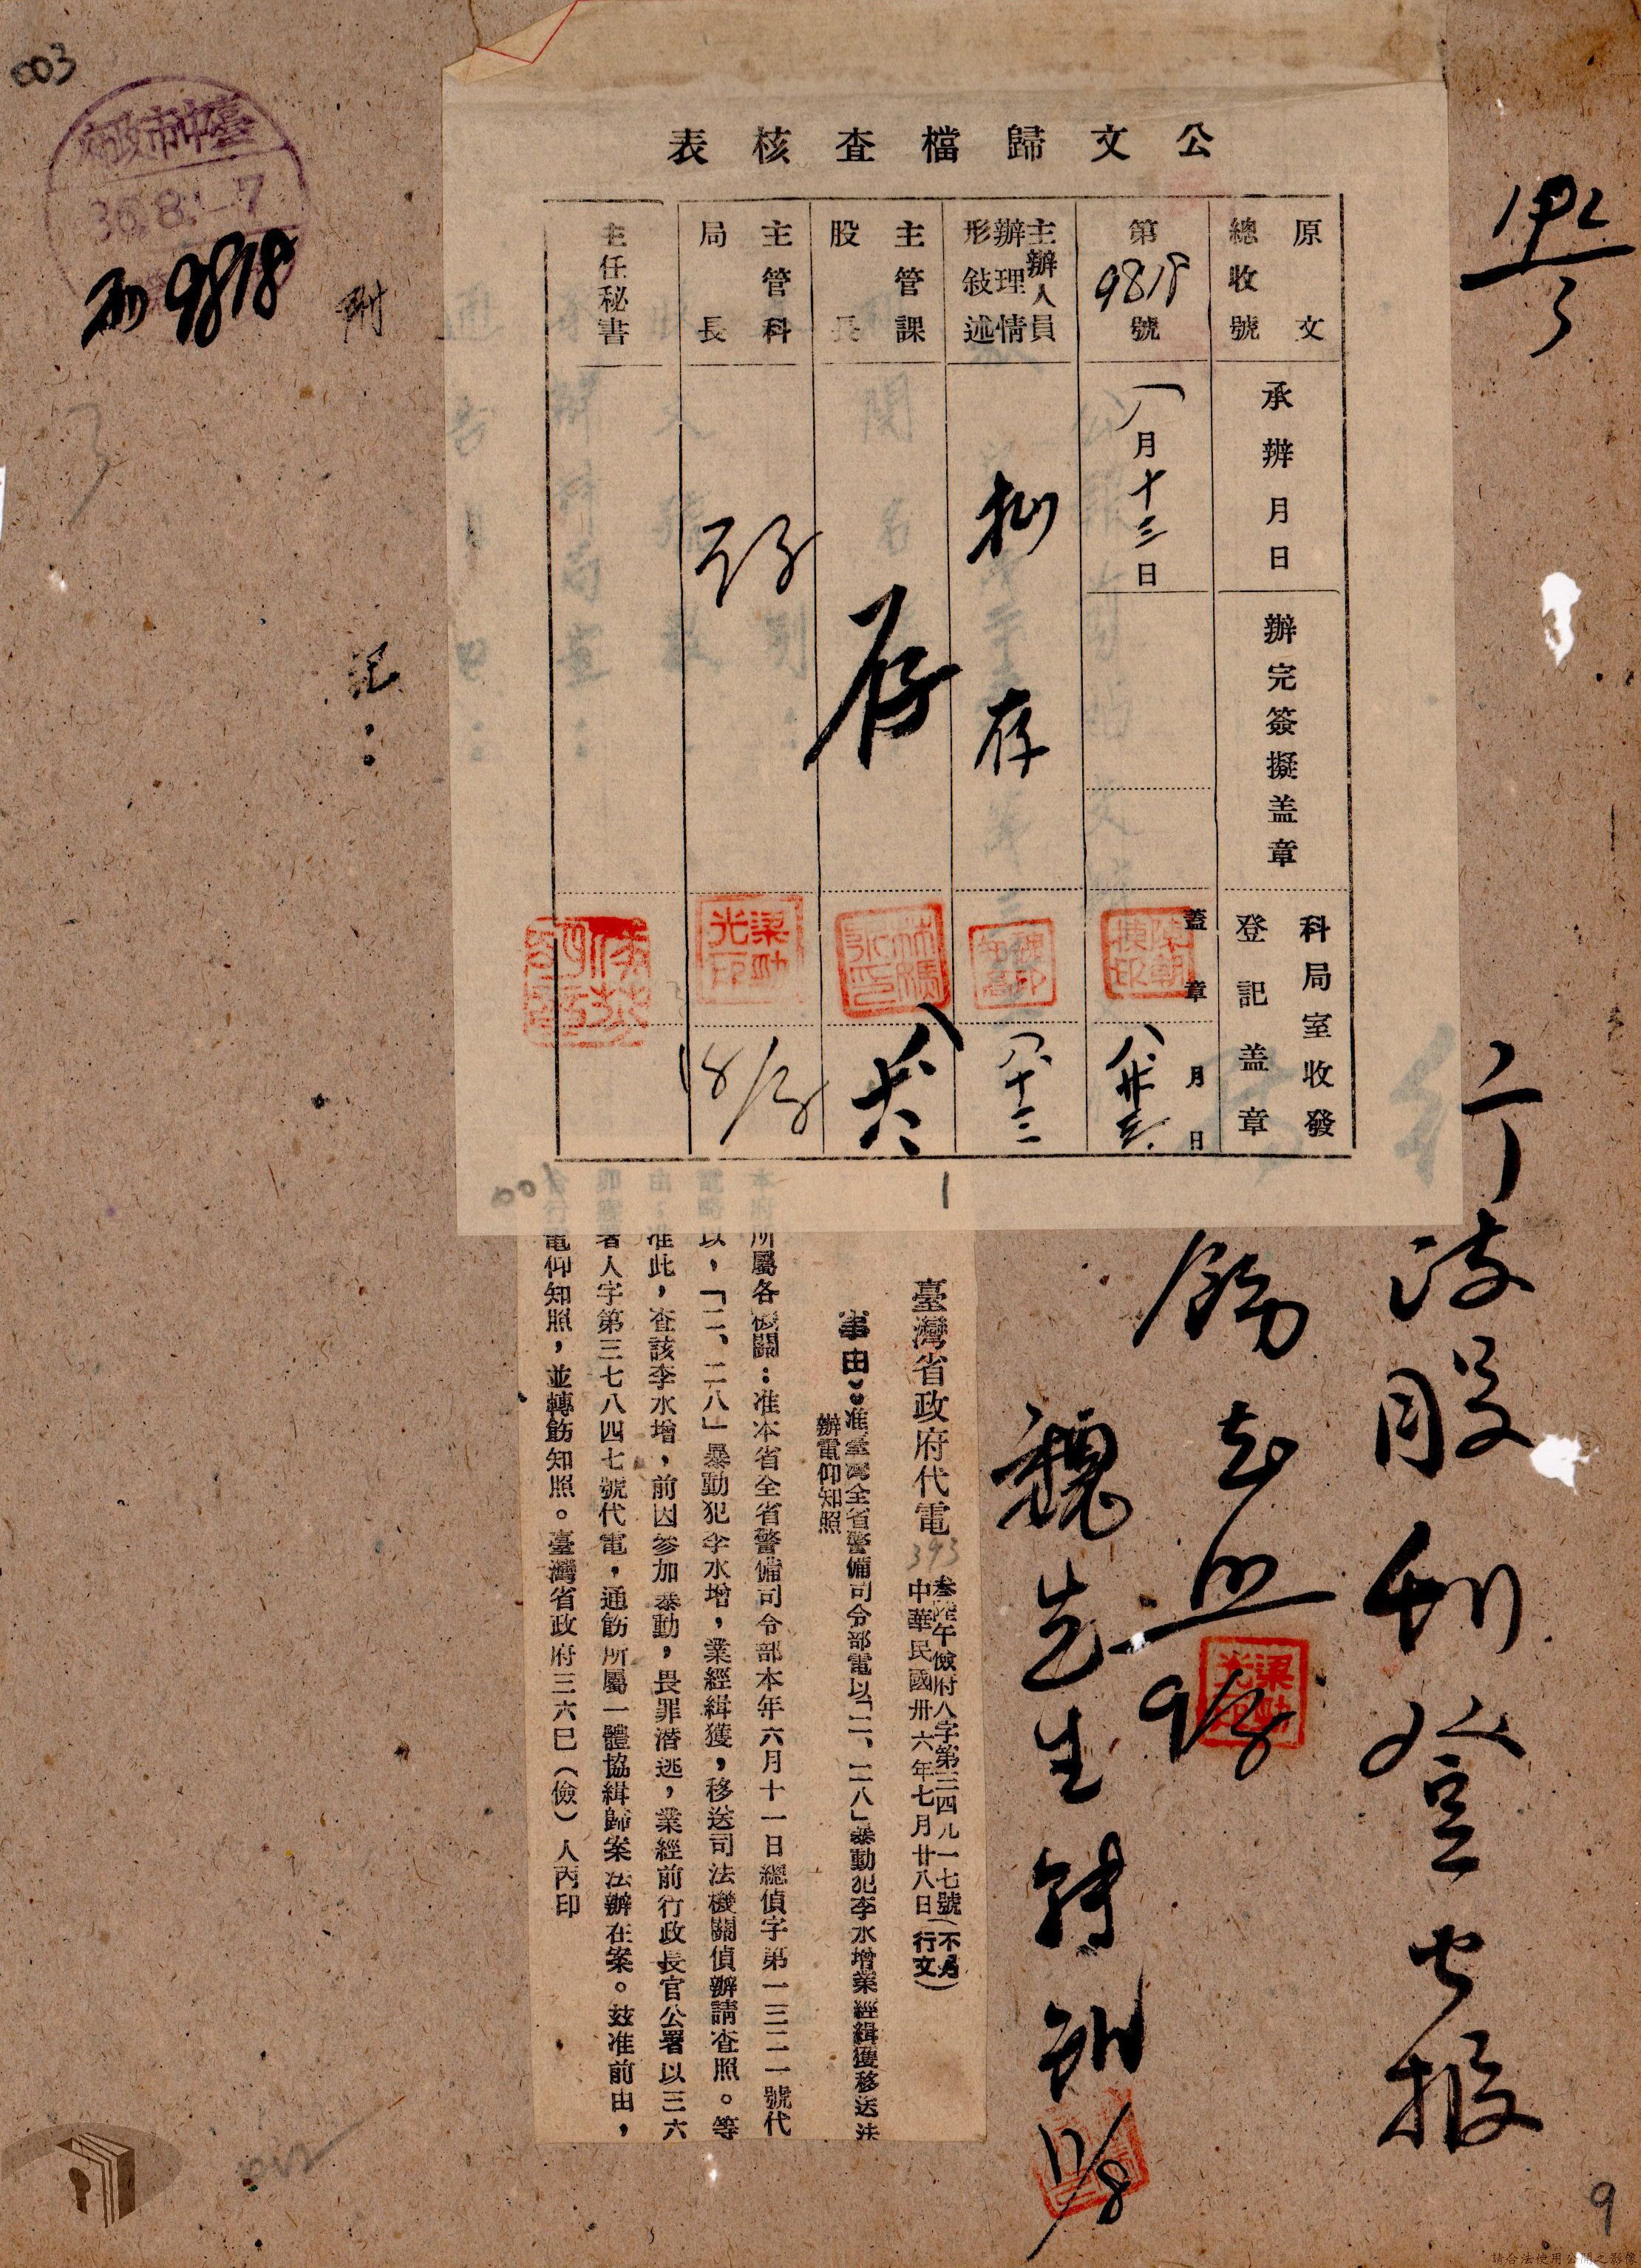 003
臺中市政府
36.8.-7
9818
附
記：
公文歸檔查核表
原文總收號
承辦月日
辦完簽擬蓋章
科局室收發登記蓋章
第9818號
八月十三日
蓋章
月日
主辦人員辦理情形敍述
擬存
八、十三
主管課股長
存
主管科局長
存
梁勋光印
主任秘書
001
1
臺灣省政府代電
393
叁陸午儉府人字第三四八一七號
中華民國卅六年七月廿八日
（不另行文）
事由：准臺灣全省警備司令部電以「二、二八」暴動犯李水增業經緝獲移送法
辦電仰知照
本府所屬各機關：准本省全省警備司令部本年六月十一日總偵字第一三二一號代
電略以，「二、二八」暴動犯李水增，業經緝獲，移送司法機關偵辦請查照。等
由；准此，查該李水增，前因參加暴動，畏罪潛逃，業經前行政長官公署以三六
卯 署人字第三七八四七號代電，通飭所屬一體協緝歸案法辦在案。茲准前由，
合行電仰知照，並轉飭知照。臺灣省政府三六巳（儉）人丙印
股刊登 報
知照
9/8
魏先生
11/8
9
請合法使用公開之影像